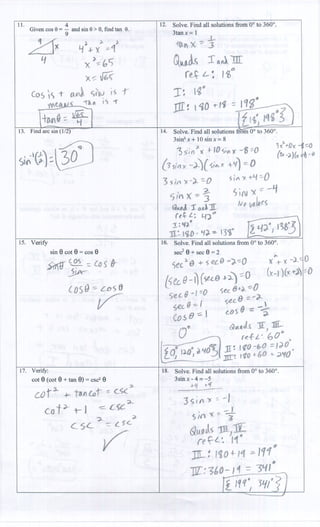 11.
Given cos θ = 4/9 and sin θ > 0, find tan θ.
9
x
4
4² + x² = 9²
x² = 65
x = √65
cos is + and sin is +
means tan is +
tan θ = √65/4
12. Solve. Find all solutions from 0° to 360°.
3tan x = 1
tan x = 1/3
Quads I and III
ref ∠: 18°
I: 18°
III: 180 + 18 = 198°
{18°, 198°}
13. Find arc sin (1/2)
sin⁻¹(1/2) = 30°
14. Solve. Find all solutions from 0° to 360°.
3sin² x + 10 sin x = 8
3 sin² x + 10 sin x - 8 = 0
(3 sin x - 2)(sin x + 4) = 0
3 sin x - 2 = 0 sin x + 4 = 0
sin x = 2/3 sin x = -4
Quad I and II No values
ref ∠: 42°
I: 42°
II: 180 - 42 = 138°
{42°, 138°}
15. Verify
sin θ cot θ = cos θ
sin θ cos/sin = cos θ
cos θ = cos θ
16. Solve. Find all solutions from 0° to 360°.
sec² θ + sec θ = 2
sec² θ + sec θ - 2 = 0
x² + x - 2 = 0
(sec θ - 1)(sec θ + 2) = 0
(x-1)(x+2) = 0
sec θ - 1 = 0 sec θ + 2 = 0
sec θ = 1 sec θ = -2
cos θ = 1 cos θ = -1/2
0° Quads II, III
ref ∠: 60°
II: 180 - 60 = 120°
III: 180 + 60 = 240°
{0°, 120°, 240°}
17. Verify:
cot θ (cot θ + tan θ) = csc² θ
cot² + tan cot = csc²
cot² + 1 = csc²
csc² = csc²
18. Solve. Find all solutions from 0° to 360°.
3sin x - 4 = -5
+4 +4
3 sin x = -1
sin x = -1/3
Quads III, IV
ref ∠: 19°
III: 180 + 19 = 199°
IV: 360 - 19 = 341°
{199°, 341°}